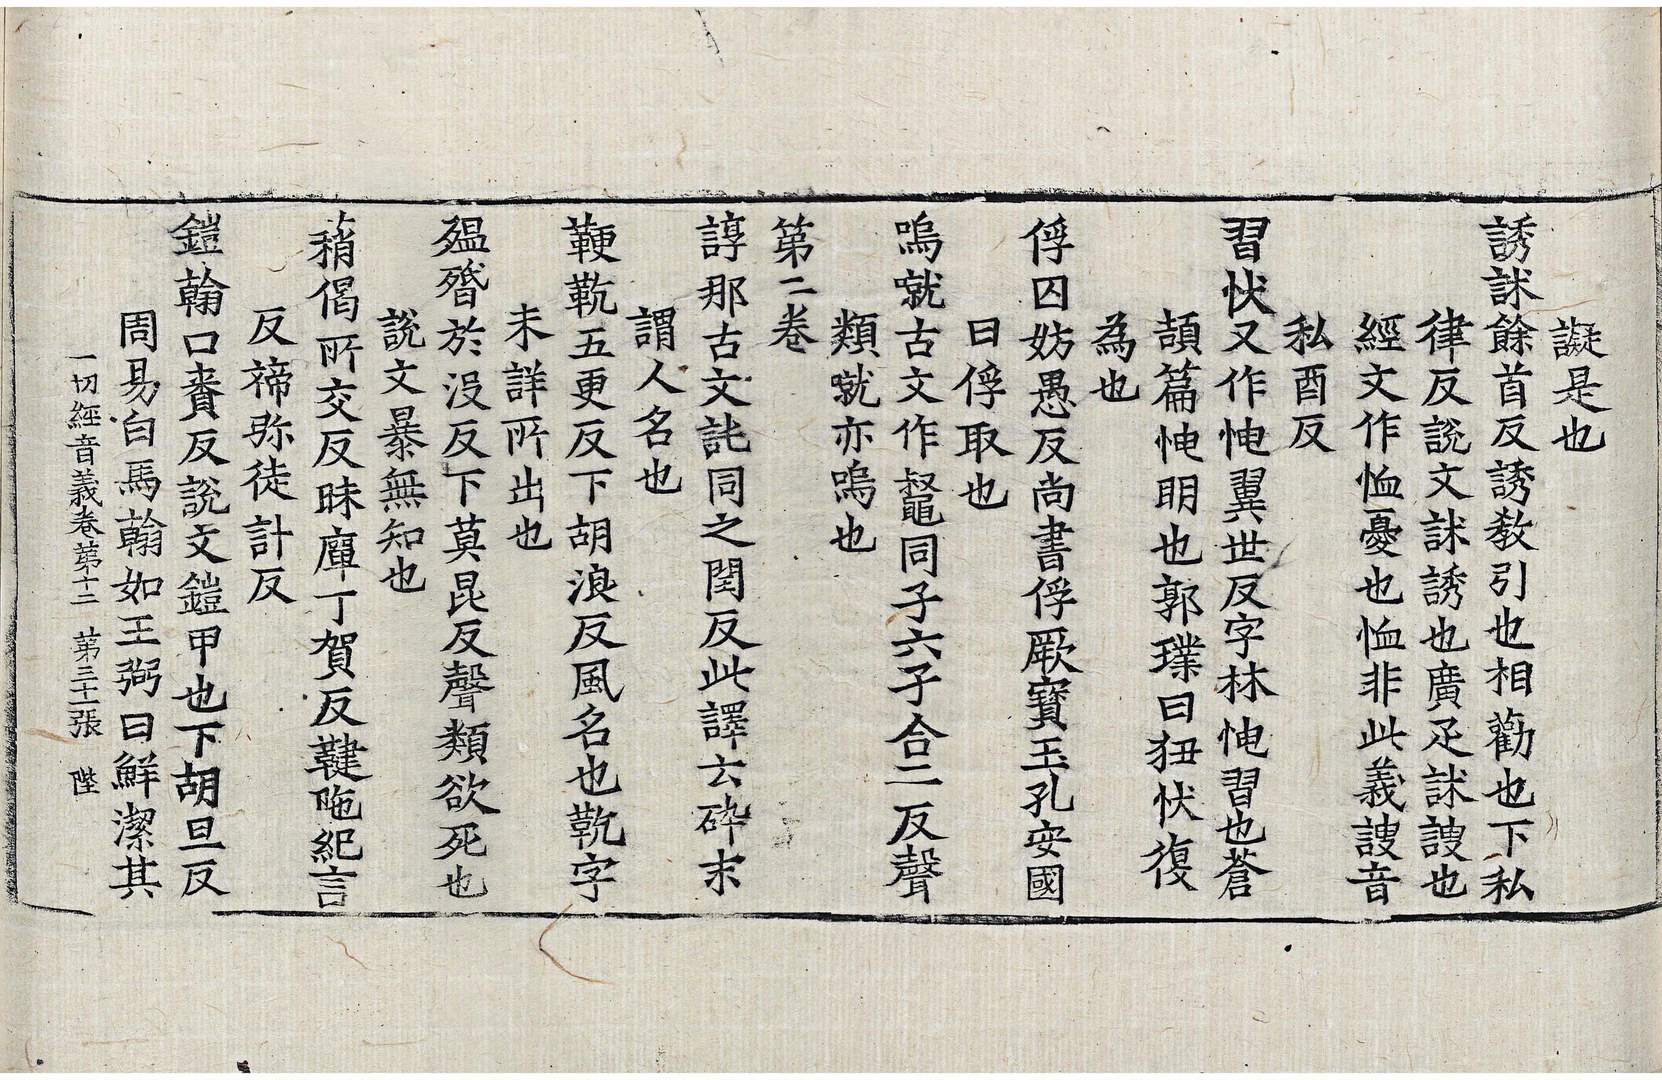 譺是也
誘訹餘首反誘教引也相勸也下私
律反說文訹誘也廣疋訹謏也
經文作恤憂也恤非此義謏音
私酉反
習忕又作忚翼世反字林忚習也蒼
頡篇忚明也郭璞曰狃忕復
為也
俘囚妨愚反尚書俘厥寶玉孔安國
曰俘取也
嗚噈古文作𪓰同子六子合二反聲
類噈亦嗚也
第二卷
諄那古文訰同之閏反此譯云碎末
謂人名也
鞕䩑五更反下胡浪反風名也䩑字
未詳所出也
殟殙於沒反下莫昆反聲類欲死也
說文暴無知也
䈰偈所交反昧庫丁賀反鞬暆紀言
反禘弥徒計反
鎧翰口賚反說文鎧甲也下胡旦反
周易白馬翰如王弼曰鮮潔其
一切經音義卷第十二 第三十一張 陛